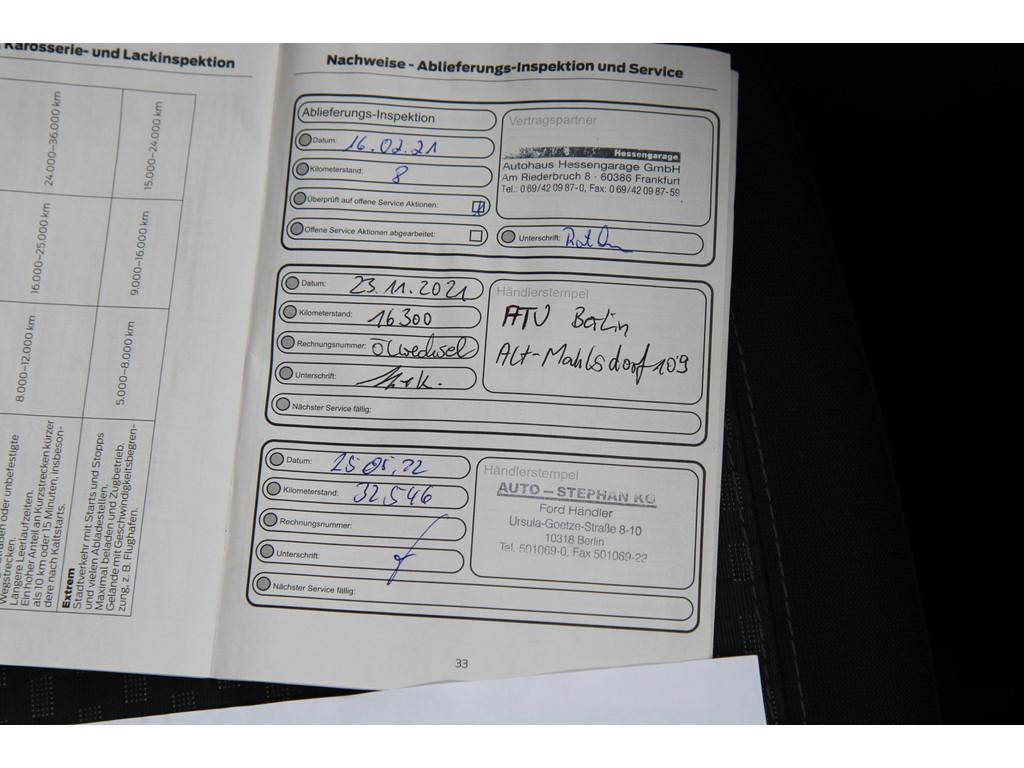 Karosserie- und Lackinspektion
24.000–36.000 km
15.000–24.000 km
16.000–25.000 km
9.000–16.000 km
8.000–12.000 km
5.000–8.000 km
oder unbefestigte
Wegstrecken.
Längere Leerlaufzeiten.
Ein hoher Anteil an Kurzstrecken kürzer
als 10 km oder 15 Minuten, insbeson-
dere nach Kaltstarts.
Extrem
Stadtverkehr mit Starts und Stopps
und vielen Abladestellen.
Maximal beladen und Zugbetrieb.
Gelände mit Geschwindigkeitsbegren-
zung, z. B. Flughafen.
Nachweise - Ablieferungs-Inspektion und Service
Ablieferungs-Inspektion
Datum: 16.02.21
Kilometerstand: 8
Überprüft auf offene Service Aktionen:
Offene Service Aktionen abgearbeitet:
Vertragspartner
Hessengarage
Autohaus Hessengarage GmbH
Am Riederbruch 8 - 60386 Frankfurt
Tel.: 0 69/42 09 87-0, Fax: 0 69/42 09 87-59
Unterschrift:
Datum: 23.11.2021
Kilometerstand: 16300
Rechnungsnummer: Ölwechsel
Unterschrift:
Nächster Service fällig:
Händlerstempel
ATU Berlin
Alt-Mahlsdorf 109
Datum: 25.05.22
Kilometerstand: 32.546
Rechnungsnummer:
Unterschrift:
Nächster Service fällig:
Händlerstempel
AUTO – STEPHAN KG
Ford Händler
Ursula-Goetze-Straße 8-10
10318 Berlin
Tel. 501069-0, Fax 501069-22
33